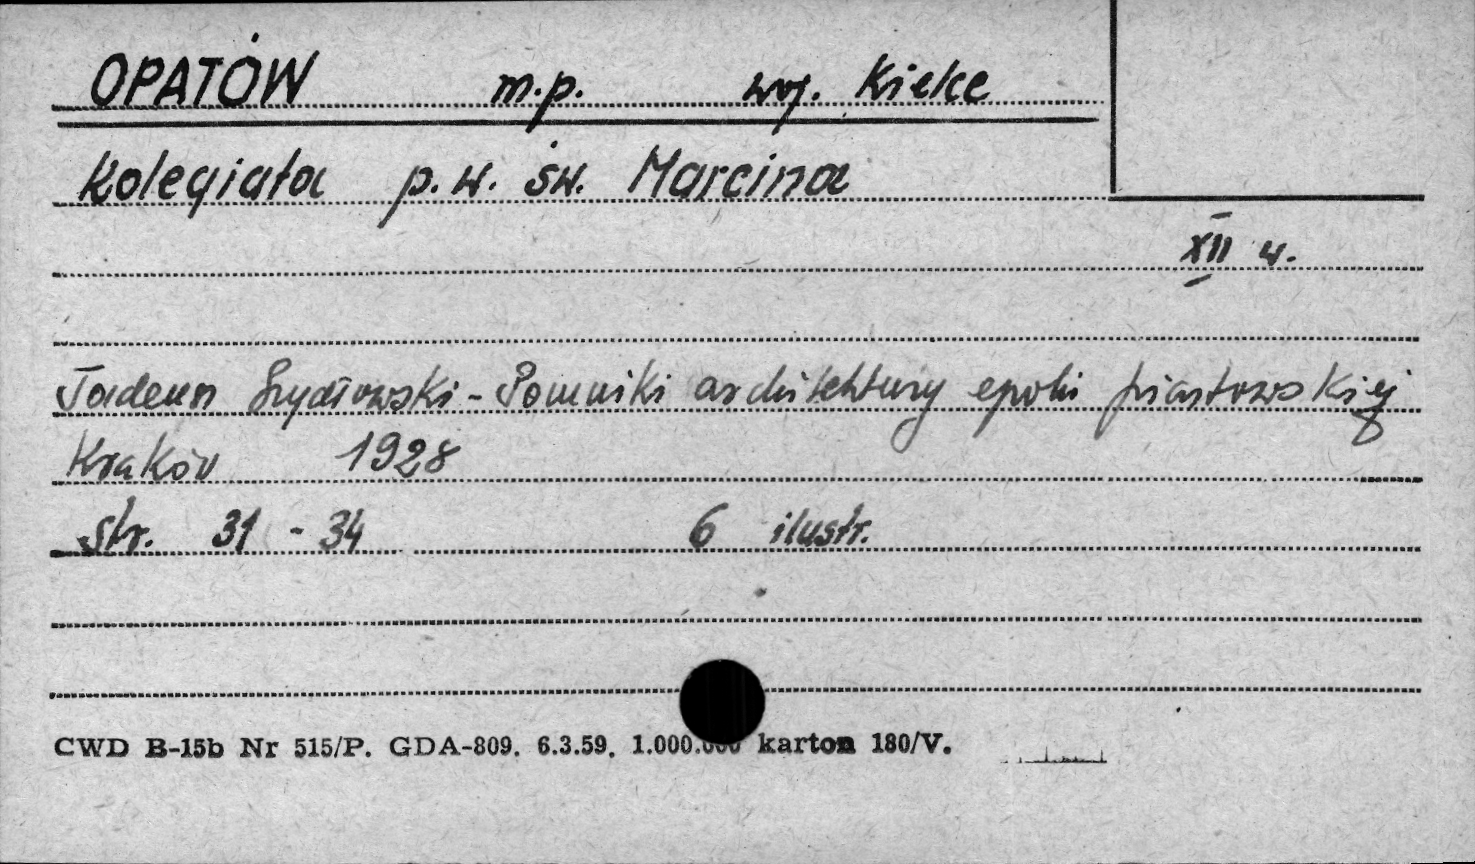 OPATÓW m.p. woj. Kielce
Kolegiata p.w. św. Marcina
XII w.
Tadeusz Szydłowski - Pomniki architektury epoki piastowskiej
Kraków 1928
str. 31 - 34 6 ilustr.
CWD B-15b Nr 515/P. GDA-809. 6.3.59. 1.000.000 karton 180/V.